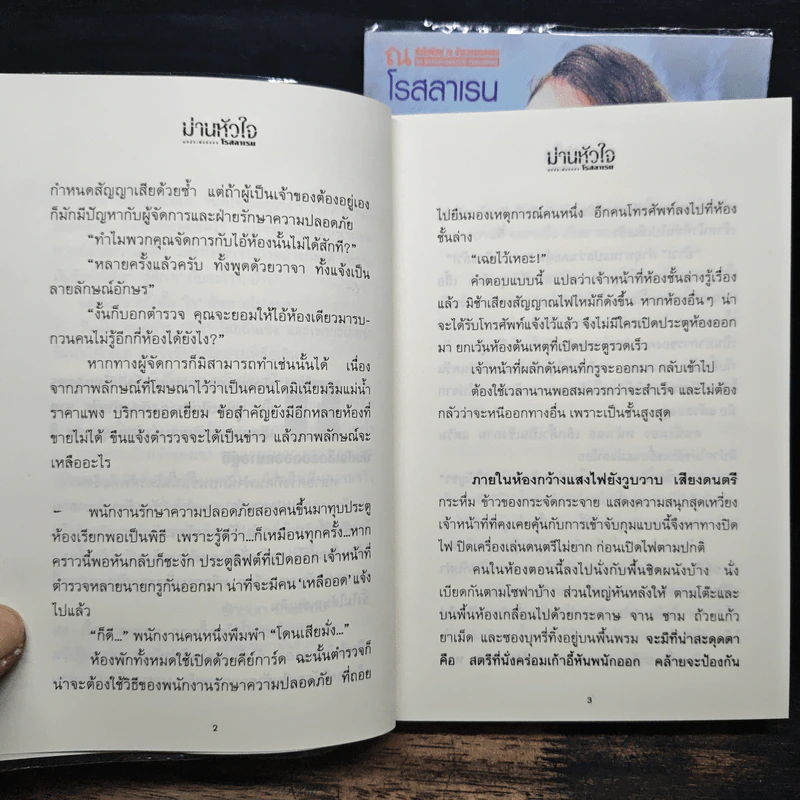 ณ
โรสลาเรน
ม่านหัวใจ
โรสลาเรน
กำหนดสัญญาเสียด้วยซ้ำ แต่ถ้าผู้เป็นเจ้าของต้องอยู่เอง
ก็มักมีปัญหากับผู้จัดการและฝ่ายรักษาความปลอดภัย
“ทำไมพวกคุณจัดการกับไอ้ห้องนั้นไม่ได้สักที?”
“หลายครั้งแล้วครับ ทั้งพูดด้วยวาจา ทั้งแจ้งเป็น
ลายลักษณ์อักษร”
“งั้นก็บอกตำรวจ คุณจะยอมให้ไอ้ห้องเดียวมารบ-
กวนคนไม่รู้อีกกี่ห้องได้ยังไง?”
หากทางผู้จัดการก็มิสามารถทำเช่นนั้นได้ เนื่อง
จากภาพลักษณ์ที่โฆษณาไว้ว่าเป็นคอนโดมิเนียมริมแม่น้ำ
ราคาแพง บริการยอดเยี่ยม ข้อสำคัญยังมีอีกหลายห้องที่
ขายไม่ได้ ขืนแจ้งตำรวจจะได้เป็นข่าว แล้วภาพลักษณ์จะ
เหลืออะไร
พนักงานรักษาความปลอดภัยสองคนขึ้นมาทุบประตู
ห้องเรียกพอเป็นพิธี เพราะรู้ดีว่า...ก็เหมือนทุกครั้ง...หาก
คราวนี้พอหันกลับก็ชะงัก ประตูลิฟต์ที่เปิดออก เจ้าหน้าที่
ตำรวจหลายนายกรูกันออกมา น่าที่จะมีคน ‘เหลืออด’ แจ้ง
ไปแล้ว
“ก็ดี...” พนักงานคนหนึ่งพึมพำ “โดนเสียมั่ง...”
ห้องพักทั้งหมดใช้เปิดด้วยคีย์การ์ด ฉะนั้นตำรวจก็
น่าจะต้องใช้วิธีของพนักงานรักษาความปลอดภัย ที่ถอย
2
ม่านหัวใจ
โรสลาเรน
ไปยืนมองเหตุการณ์คนหนึ่ง อีกคนโทรศัพท์ลงไปที่ห้อง
ชั้นล่าง
“เฉยไว้เหอะ!”
คำตอบแบบนี้ แปลว่าเจ้าหน้าที่ห้องชั้นล่างรู้เรื่อง
แล้ว มิช้าเสียงสัญญาณไฟไหม้ก็ดังขึ้น หากห้องอื่นๆ น่า
จะได้รับโทรศัพท์แจ้งไว้แล้ว จึงไม่มีใครเปิดประตูห้องออก
มา ยกเว้นห้องต้นเหตุที่เปิดประตูรวดเร็ว
เจ้าหน้าที่ผลักดันคนที่กรูจะออกมา กลับเข้าไป
ต้องใช้เวลานานพอสมควรกว่าจะสำเร็จ และไม่ต้อง
กลัวว่าจะหนีออกทางอื่น เพราะเป็นชั้นสูงสุด
ภายในห้องกว้างแสงไฟยังวูบวาบ เสียงดนตรี
กระหึ่ม ข้าวของกระจัดกระจาย แสดงความสนุกสุดเหวี่ยง
เจ้าหน้าที่ที่คงเคยคุ้นกับการเข้าจับกุมแบบนี้จึงหาทางปิด
ไฟ ปิดเครื่องเล่นดนตรีไม่ยาก ก่อนเปิดไฟตามปกติ
คนในห้องตอนนี้ลงไปนั่งกับพื้นชิดผนังบ้าง นั่ง
เบียดกันตามโซฟาบ้าง ส่วนใหญ่หันหลังให้ ตามโต๊ะและ
บนพื้นห้องเกลื่อนไปด้วยกระดาษ จาน ชาม ถ้วยแก้ว
ยาเม็ด และซองบุหรี่ทิ้งอยู่บนพื้นพรม จะมีที่น่าสะดุดตา
คือ สตรีที่นั่งคร่อมเก้าอี้หันพนักออก คล้ายจะป้องกัน
3